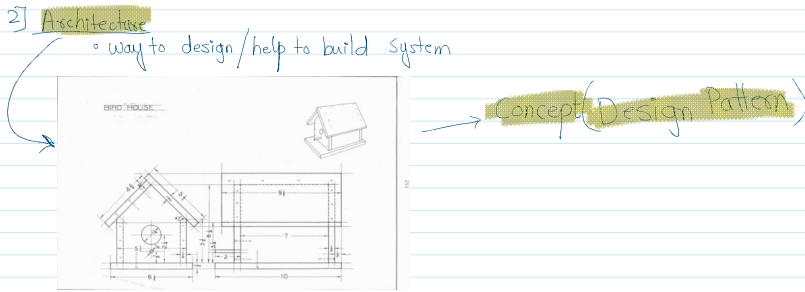 2] Architecture
• way to design/help to build system
BIRD HOUSE
Concept (Design Pattern)
9½
7
6½
10
2